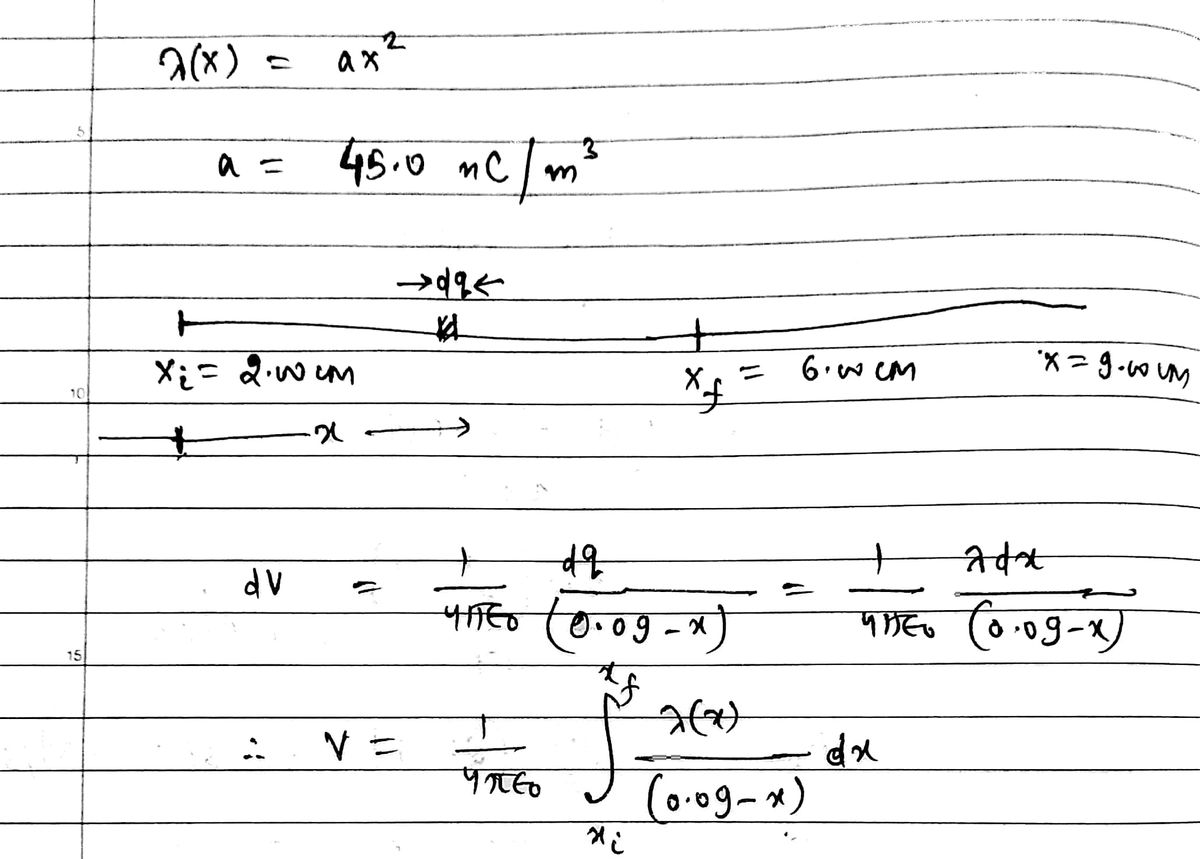 λ(x) = ax²
5
a = 45.0 nC/m³
→dq←
xᵢ = 2.00 cm x_f = 6.00 cm x = 9.00 cm
10
x →
15
dV = 1/(4πε₀) dq/(0.09-x) = 1/(4πε₀) λdx/(0.09-x)
∴ V = 1/(4πε₀) ∫_{xᵢ}^{x_f} λ(x)/(0.09-x) dx